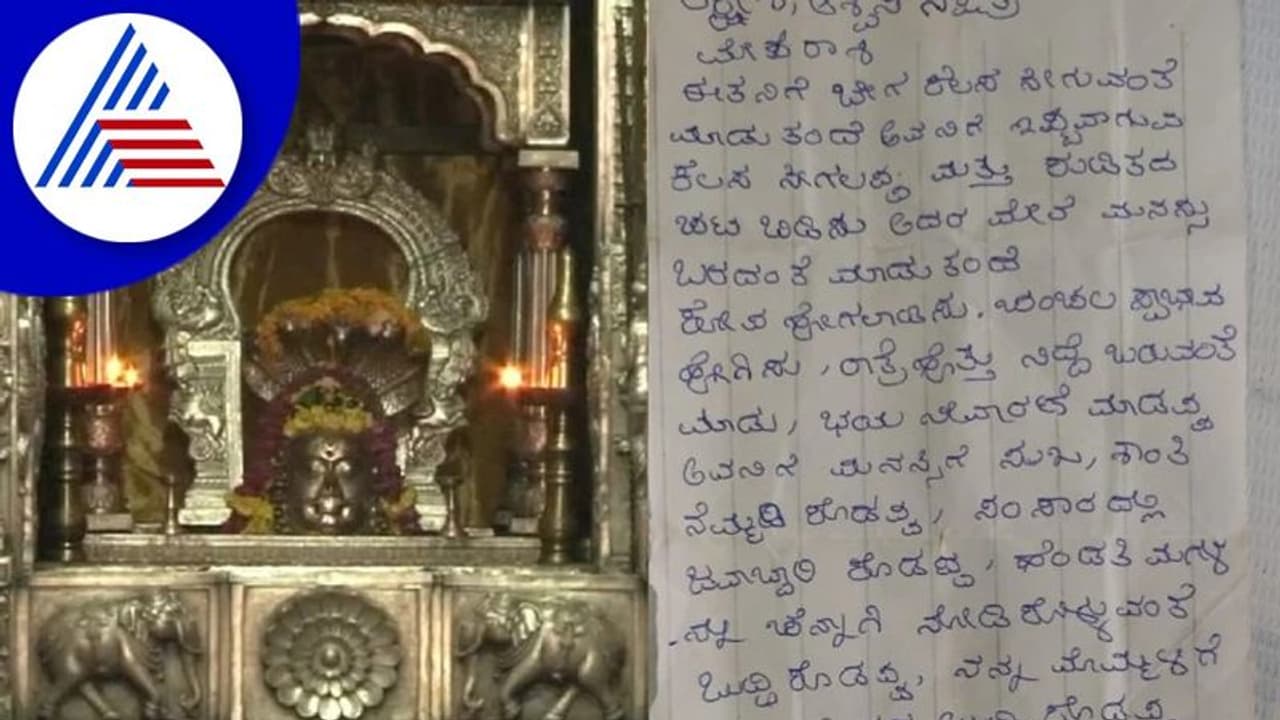 ಮೇಶರಾಶಿ
ಈತನಿಗೆ ಬೇಗ ಕೆಲಸ ಸೀಗುವಂತೆ
ಮಾಡು ತಂದೆ ಅವನಿಗೆ ಇಷ್ಟವಾಗುವ
ಕೆಲಸ ಸೀಗಲಪ್ಪ ಮತ್ತು ಕುಡಿತದ
ಚಟ ಬಿಡಿಸು ಅದರ ಮೇಲೆ ಮನಸ್ಸು
ಬರದಂತೆ ಮಾಡು ತಂದೆ
ಕೋಪ ಹೋಗಲಾಡಿಸು. ಚಂಚಲ ಸ್ವಾಭಾವ
ಹೋಗಿಸು, ರಾತ್ರೆಹೊತ್ತು ನಿದ್ದೆ ಬರುವಂತೆ
ಮಾಡು, ಭಯ ನೀವಾರಣೆ ಮಾಡಪ್ಪ
ಅವನಿಗೆ ಮನಸ್ಸಿಗೆ ಸುಖ, ಶಾಂತಿ
ನೆಮ್ಮದಿ ಕೊಡಪ್ಪ, ಸಂಸಾರದಲ್ಲಿ
ಜವಾಬ್ದಾರಿ ಕೊಡಪ್ಪ, ಹೆಂಡತಿ ಮಗಳ
ನ್ನು ಚೆನ್ನಾಗಿ ನೋಡಿಕೊಳ್ಳುವಂತೆ
ಬುದ್ದಿಕೊಡಪ್ಪ, ನನ್ನ ಮೊಮ್ಮಳಿಗೆ
ಕೊಡಪ್ಪ